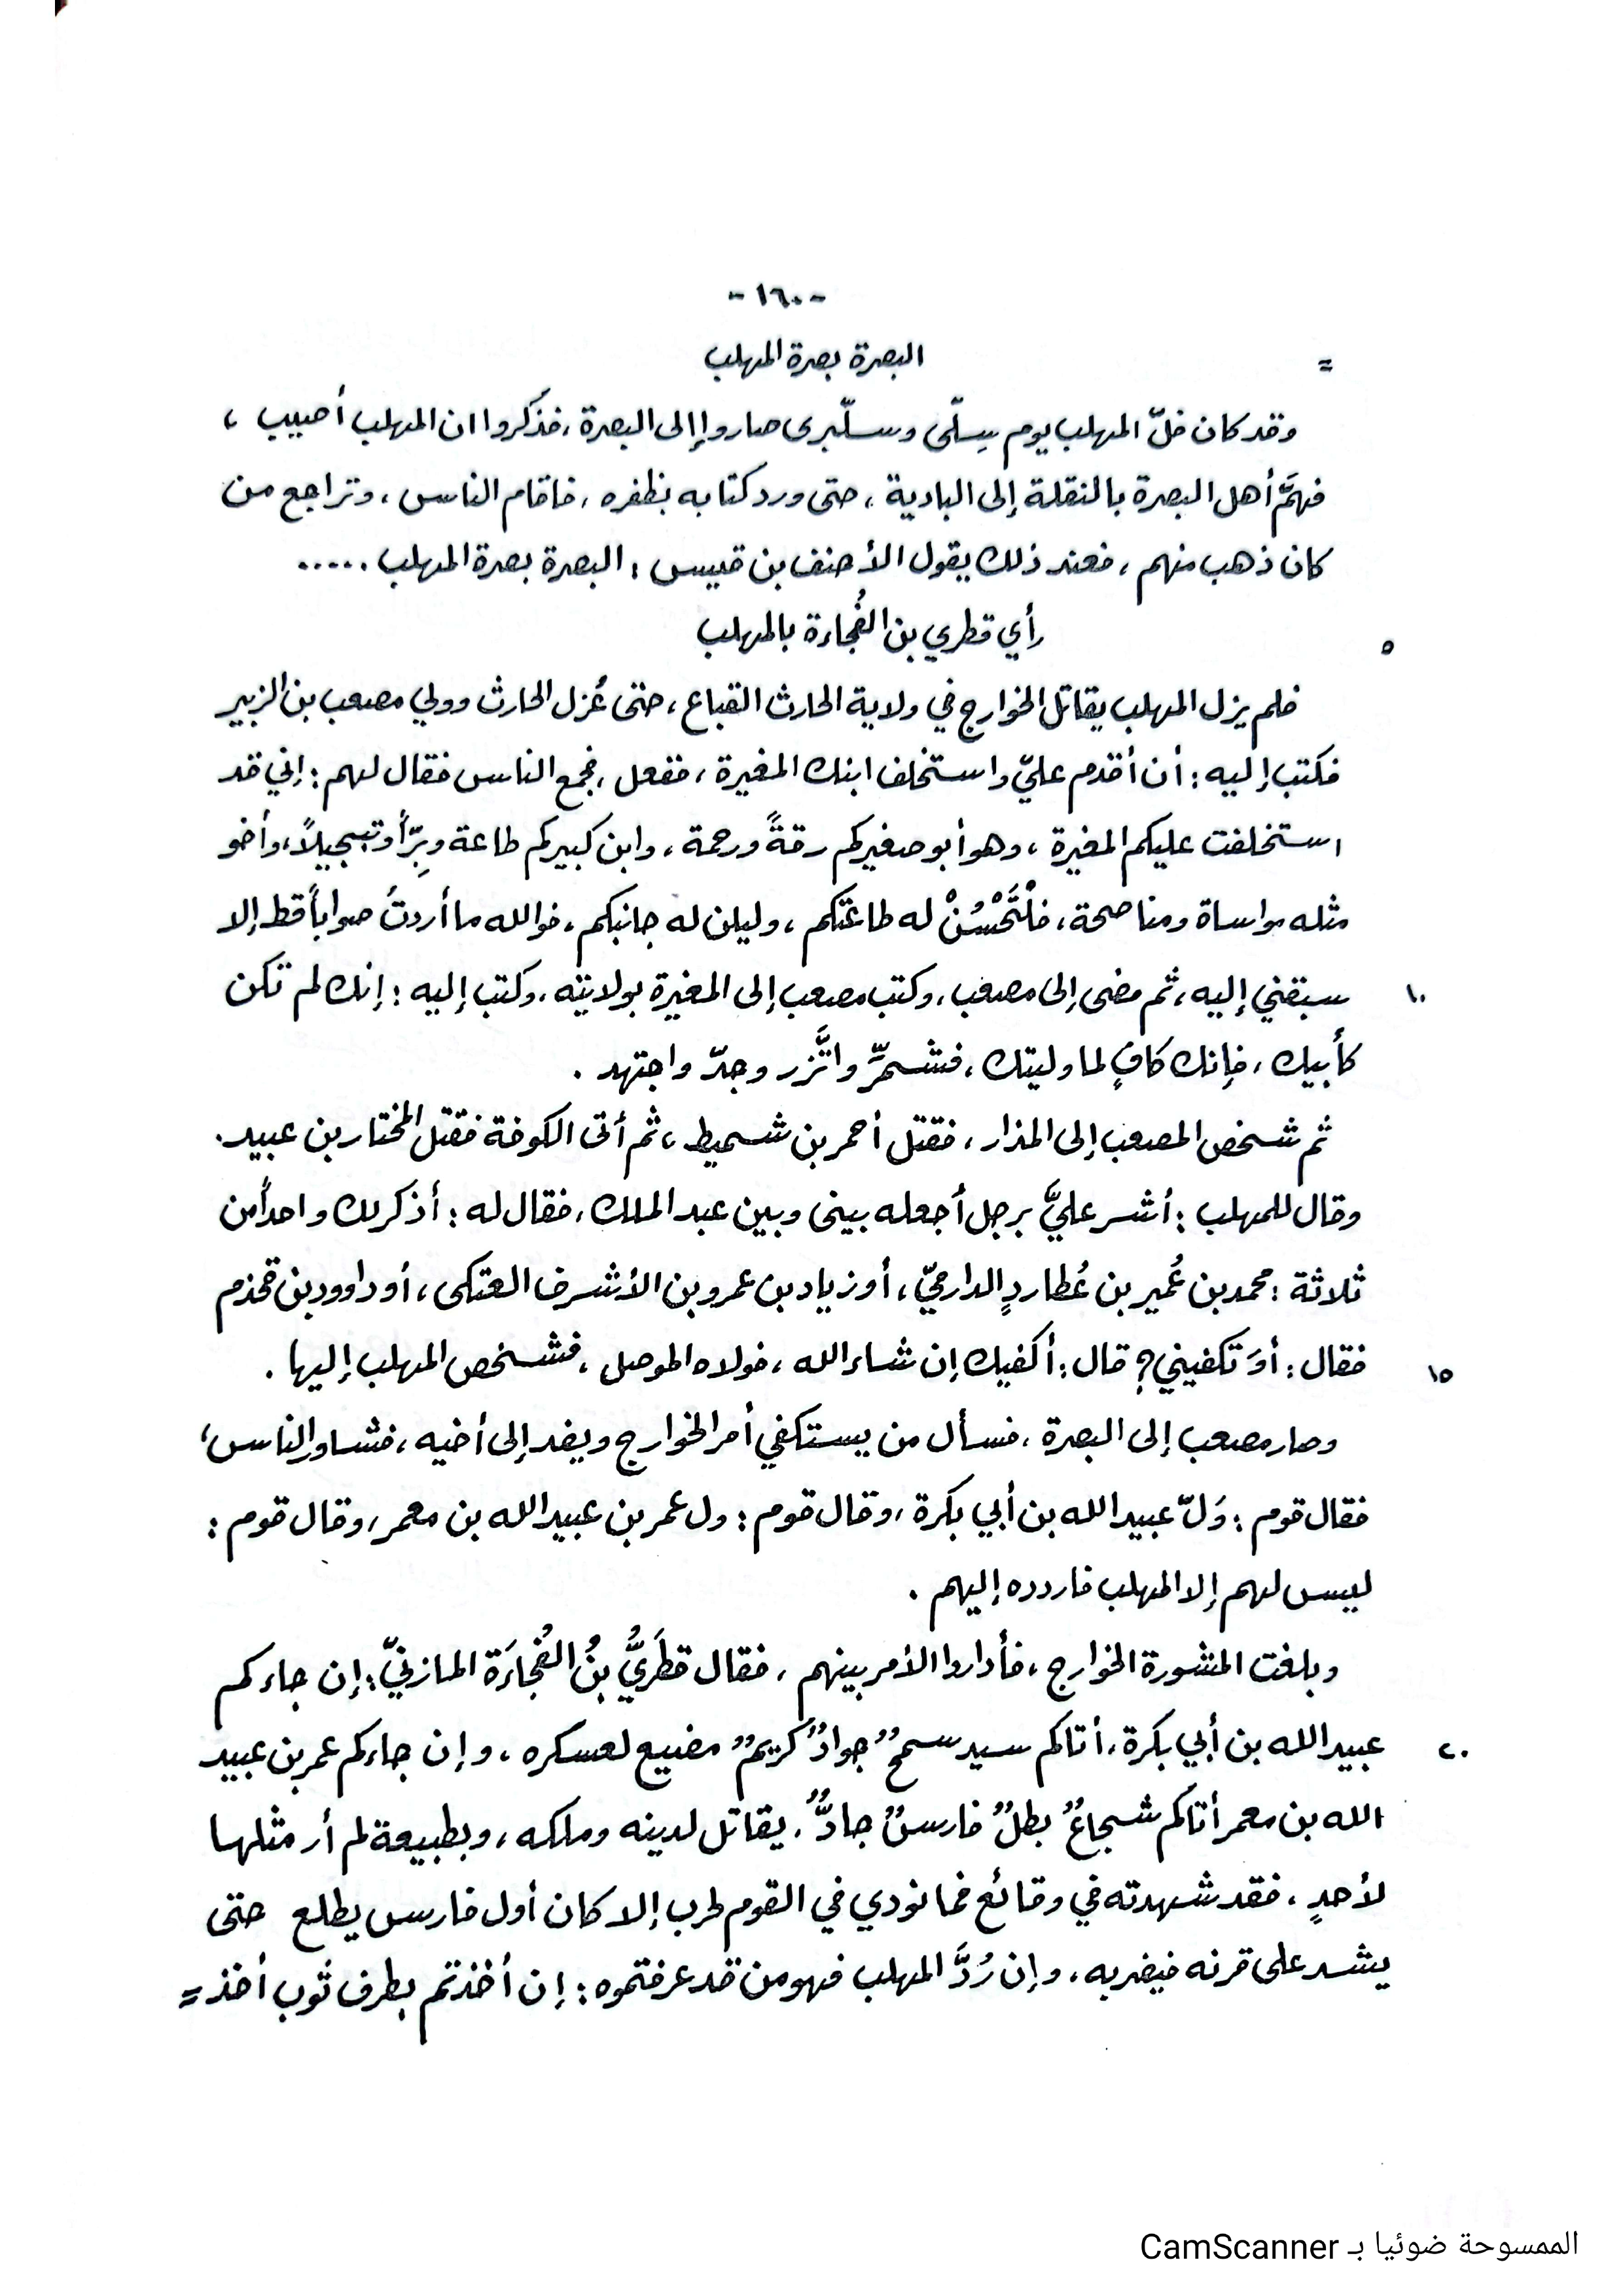 -١٦٠-
= البصرة بصرة المهلب
وقد كان فلّ المهلب يوم سِلّى وسلّبرى صاروا إلى البصرة، فذكروا ان المهلب أصيب ،
فهمَّ أهل البصرة بالنقلة إلى البادية ، حتى ورد كتابه بظفره ، فاقام الناس ، وتراجع من
كان ذهب منهم ، فعند ذلك يقول الأحنف بن قيس : البصرة بصرة المهلب .....
٥ رأي قطري بن الفُجاءة بالمهلب
فلم يزل المهلب يقاتل الخوارج في ولاية الحارث القباع ، حتى عُزل الحارث وولي مصعب بن الزبير
فكتب إليه : أن أقدم عليّ واستخلف ابنك المغيرة ، ففعل ، فجمع الناس فقال لهم : إني قد
استخلفت عليكم المغيرة ، وهو أبو صغيركم رقةً ورحمة ، وابن كبيركم طاعة وبِرّاً وتبجيلاً، وأخو
مثله مواساة ومناصحة ، فلْتَحْسُنْ له طاعتكم ، وليلن له جانبكم ، فوالله ما أردتُ صواباً قط إلا
١٠ سبقني إليه ، ثم مضى إلى مصعب ، وكتب مصعب إلى المغيرة بولايته ، وكتب إليه : إنك لم تكن
كأبيك ، فإنك كافٍ لما وليتك ، فشمِّر واتَّزر وجدّ واجتهد .
ثم شخص المصعب إلى المذار ، فقتل أحمر بن شميط ، ثم أتى الكوفة فقتل المختار بن عبيد.
وقال للمهلب : أشر عليَّ برجل أجعله بيني وبين عبد الملك ، فقال له : أذكر لك واحداً من
ثلاثة : محمد بن عُمير بن عُطاردٍ الدارميّ ، أو زياد بن عمرو بن الأشرف العتكى ، أو داوود بن قحذم
١٥ فقال : أوَ تكفيني ؟ قال : أكفيك إن شاء الله ، فولاه الموصل ، فشخص المهلب إليها .
وصار مصعب إلى البصرة ، فسأل من يستكفي أمر الخوارج ويفد إلى أخيه ، فشاور الناس ،
فقال قوم : وَلّ عبيد الله بن أبي بكرة ، وقال قوم : ول عمر بن عبيد الله بن معمر ، وقال قوم :
ليس لهم إلا المهلب فاردده إليهم .
وبلغت المشورة الخوارج ، فأداروا الأمر بينهم ، فقال قطَريُّ بنُ الفُجاءَة المازنيّ : إن جاءكم
٢٠ عبيد الله بن أبي بكرة ، أتاكم سيد سمحٌ جوادٌ كريمٌ مضيع لعسكره ، وإن جاءكم عمر بن عبيد
الله بن معمر أتاكم شجاعٌ بطلٌ فارسٌ جادٌّ ، يقاتل لدينه وملكه ، وبطبيعة لم أر مثلها
لأحدٍ ، فقد شهدته في وقائع فما نودي في القوم لحرب إلا كان أول فارس يطلع حتى
يشد على قرنه فيضربه ، وإن رُدَّ المهلب فهو من قد عرفتموه : إن أخذتم بطرف ثوب أخذ =
الممسوحة ضوئيا بـ CamScanner